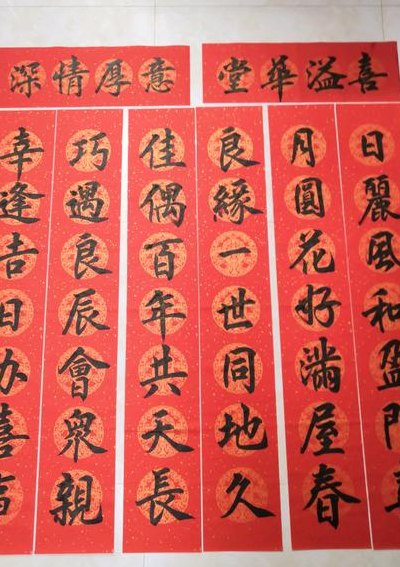 喜溢華堂
意厚情深
日麗風和盈門
月圓花好滿屋春
良緣一世同地久
佳偶百年共天長
巧遇良辰會衆親
幸逢吉日办喜